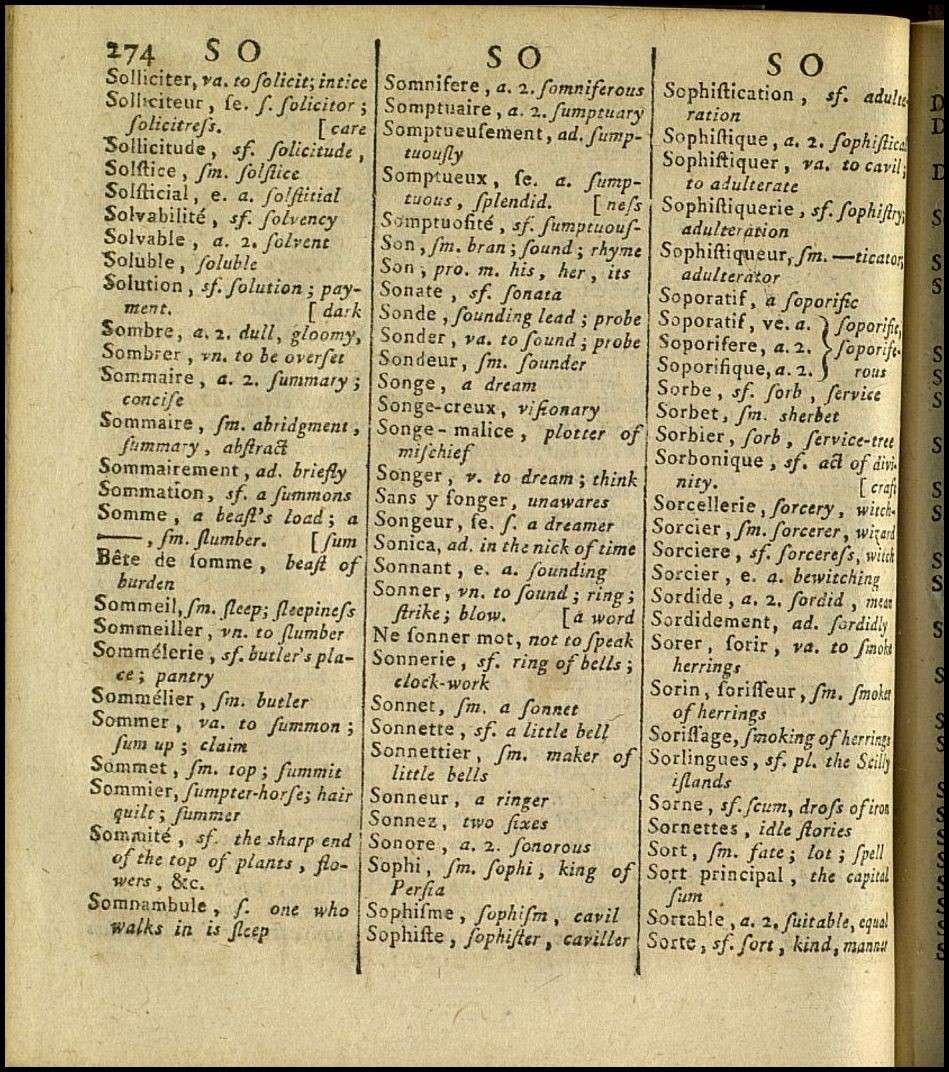 274 S O
Solliciter, va. to ſolicit; intice
Solliciteur, ſe. ſ. ſolicitor;
ſolicitreſs. [care
Sollicitude, sf. ſolicitude,
Solſtice, ſm. ſolſtice
Solſticial, e. a. ſolſtitial
Solvabilité, sf. ſolvency
Solvable, a. 2. ſolvent
Soluble, ſoluble
Solution, sf. ſolution; pay-
ment. [dark
Sombre, a. 2. dull, gloomy,
Sombrer, vn. to be overſet
Sommaire, a. 2. ſummary;
conciſe
Sommaire, ſm. abridgment,
ſummary, abſtract
Sommairement, ad. briefly
Sommation, sf. a ſummons
Somme, a beaſt's load; a
——, ſm. ſlumber. [ſum
Bête de ſomme, beaſt of
burden
Sommeil, ſm. ſleep; ſleepineſs
Sommeiller, vn. to ſlumber
Sommélerie, sf. butler's pla-
ce; pantry
Sommélier, ſm. butler
Sommer, va. to ſummon;
ſum up; claim
Sommet, ſm. top; ſummit
Sommier, ſumpter-horſe; hair
quilt; ſummer
Sommité, sf. the sharp end
of the top of plants, flo-
wers, &c.
Somnambule, ſ. one who
walks in is ſleep
S O
Somnifere, a. 2. ſomniferous
Somptuaire, a. 2. ſumptuary
Somptueuſement, ad. ſump-
tuouſly
Somptueux, ſe. a. ſump-
tuous, ſplendid. [neſs
Somptuoſité, sf. ſumptuouſ-
Son, ſm. bran; ſound; rhyme
Son, pro. m. his, her, its
Sonate, sf. ſonata
Sonde, ſounding lead; probe
Sonder, va. to ſound; probe
Sondeur, ſm. ſounder
Songe, a dream
Songe-creux, viſionary
Songe-malice, plotter of
miſchief
Songer, v. to dream; think
Sans y ſonger, unawares
Songeur, ſe. ſ. a dreamer
Sonica, ad. in the nick of time
Sonnant, e. a. ſounding
Sonner, vn. to ſound; ring;
ſtrike; blow. [a word
Ne ſonner mot, not to ſpeak
Sonnerie, sf. ring of bells;
clock-work
Sonnet, ſm. a ſonnet
Sonnette, sf. a little bell
Sonnettier, ſm. maker of
little bells
Sonneur, a ringer
Sonnez, two ſixes
Sonore, a. 2. ſonorous
Sophi, ſm. ſophi, king of
Perſia
Sophiſme, ſophiſm, cavil
Sophiſte, ſophiſter, caviller
S O
Sophiſtication, sf. adulte-
ration
Sophiſtique, a. 2. ſophiſtical
Sophiſtiquer, va. to cavil;
to adulterate
Sophiſtiquerie, sf. ſophiſtry;
adulteration
Sophiſtiqueur, ſm. —ticator,
adulterator
Soporatif, a ſoporific
Soporatif, ve. a. } ſoporific,
Soporifere, a. 2. } ſoporife-
Soporifique, a. 2. } rous
Sorbe, sf. ſorb, ſervice
Sorbet, ſm. sherbet
Sorbier, ſorb, ſervice-tree
Sorbonique, sf. act of divi-
nity. [craft
Sorcellerie, ſorcery, witch-
Sorcier, ſm. ſorcerer, wizard
Sorciere, sf. ſorcereſs, witch
Sorcier, e. a. bewitching
Sordide, a. 2. ſordid, mean
Sordidement, ad. ſordidly
Sorer, ſorir, va. to ſmoke
herrings
Sorin, ſoriſſeur, ſm. ſmoker
of herrings
Soriſſage, ſmoking of herrings
Sorlingues, sf. pl. the Scilly
iſlands
Sorne, sf. ſcum, droſs of iron
Sornettes, idle ſtories
Sort, ſm. fate; lot; ſpell
Sort principal, the capital
ſum
Sortable, a. 2. ſuitable, equal
Sorte, sf. ſort, kind, manner